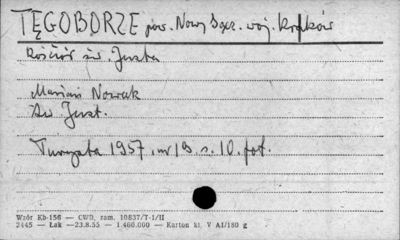 TĘGOBORZE pow. Nowy Sącz. woj. Kraków
Kościół św. Justa
Marian Nowak
Św. Just.
Turysta 1957, nr 19. s. 10. fot.
Wzór Kb-156 — CWD, zam. 10837/T-1/II
2445 — Łak —23.8.55 — 1.400.000 — Karton kl. V AI/180 g